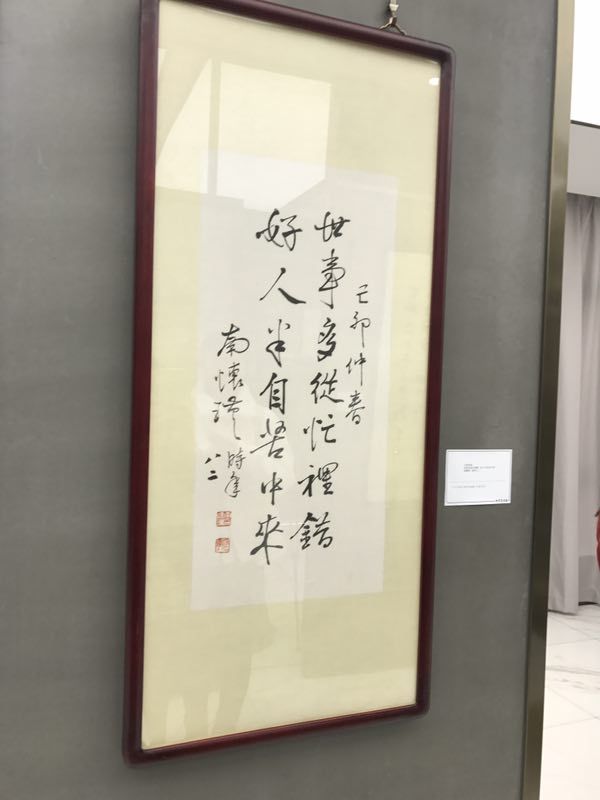 己卯仲春
世事多從忙裡錯
好人半自苦中來
南懷瑾
時年
八二